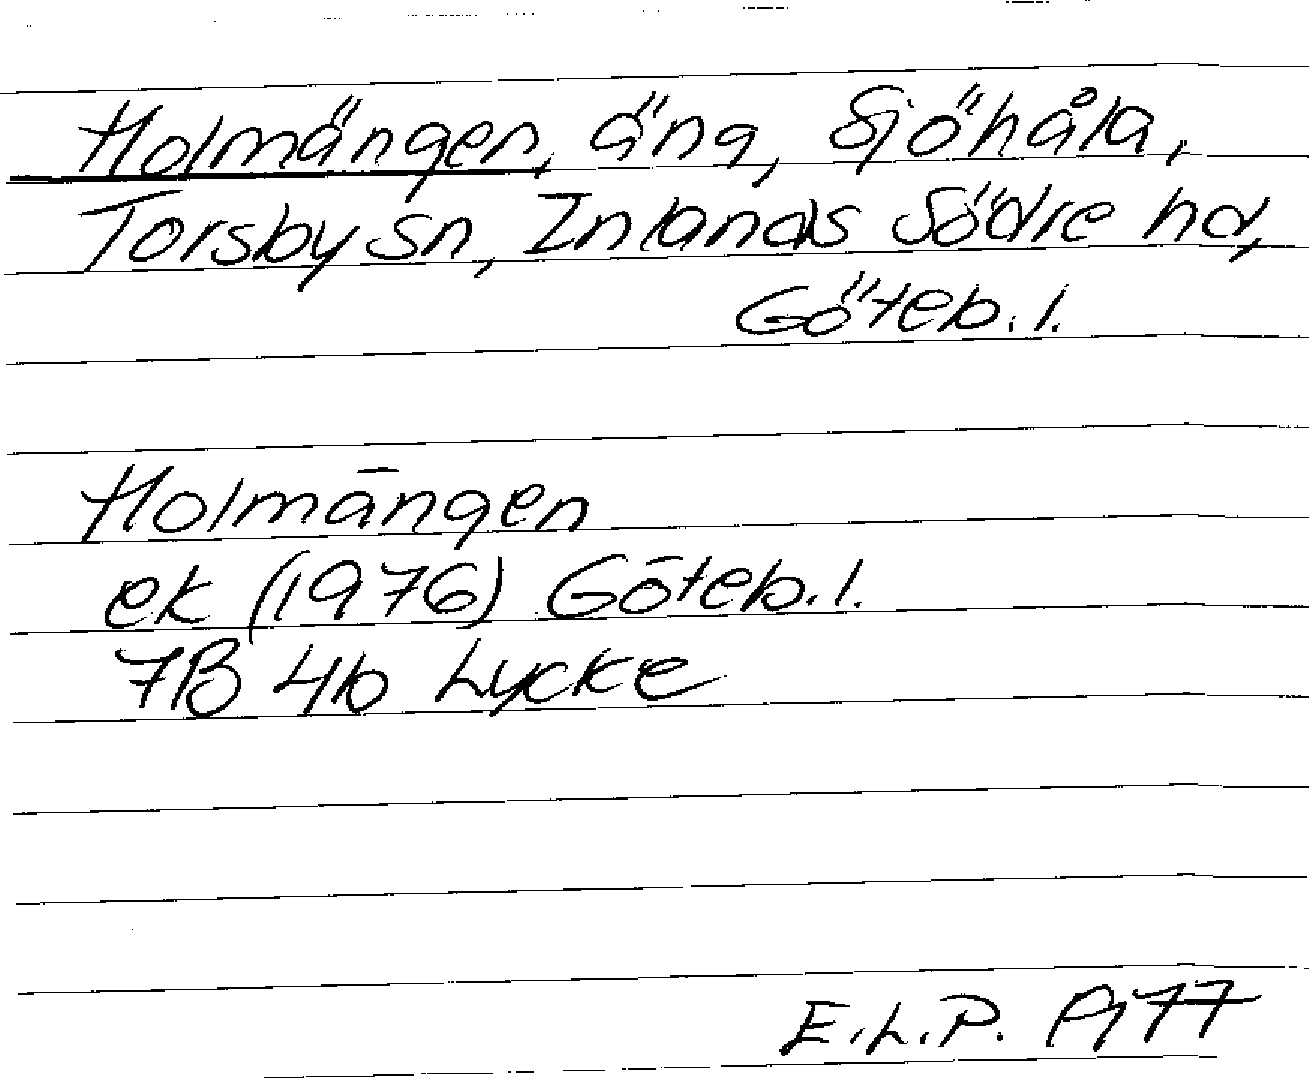 Holmängen, äng, Sjöhåla,
Torsby sn, Inlands Södre hd,
Göteb. l.
Holmängen
ek (1976) Göteb. l.
7B 4b Lycke
E.L.P. 1977